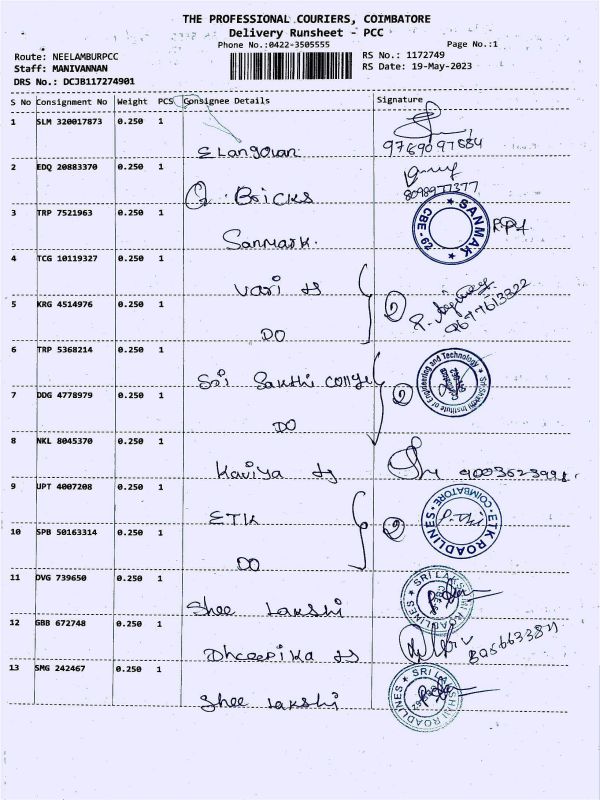 THE PROFESSIONAL COURIERS, COIMBATORE
Delivery Runsheet - PCC
Phone No.:0422-3505555
Page No.:1
Route: NEELAMBURPCC
RS No.: 1172749
Staff: MANIVANNAN
RS Date: 19-May-2023
DRS No.: DCJB117274901
S No Consignment No Weight PCS Consignee Details Signature
1 SLM 320017873 0.250 1
Elangovan 9769097884
2 EDQ 20883370 0.250 1
Bricks 8098977377
3 TRP 7521963 0.250 1
Sanmark. SANMAK CBE-62
4 TCG 10119327 0.250 1
Vari
5 KRG 4514976 0.250 1
DO
6 TRP 5368214 0.250 1
Sri Santhi College
Sri Shakthi Institute of Engineering and Technology
7 DDG 4778979 0.250 1
DO
8 NKL 8045370 0.250 1
Kaviya
9 UPT 4007208 0.250 1
ETK ETK ROADLINES COIMBATORE
10 SPB 50163314 0.250 1
DO
11 DVG 739650 0.250 1
Shee Lakshi SRI LAKSHMI ROADLINES
12 GBB 672748 0.250 1
Dheepika
13 SMG 242467 0.250 1
Shee Lakshi SRI LAKSHMI ROADLINES